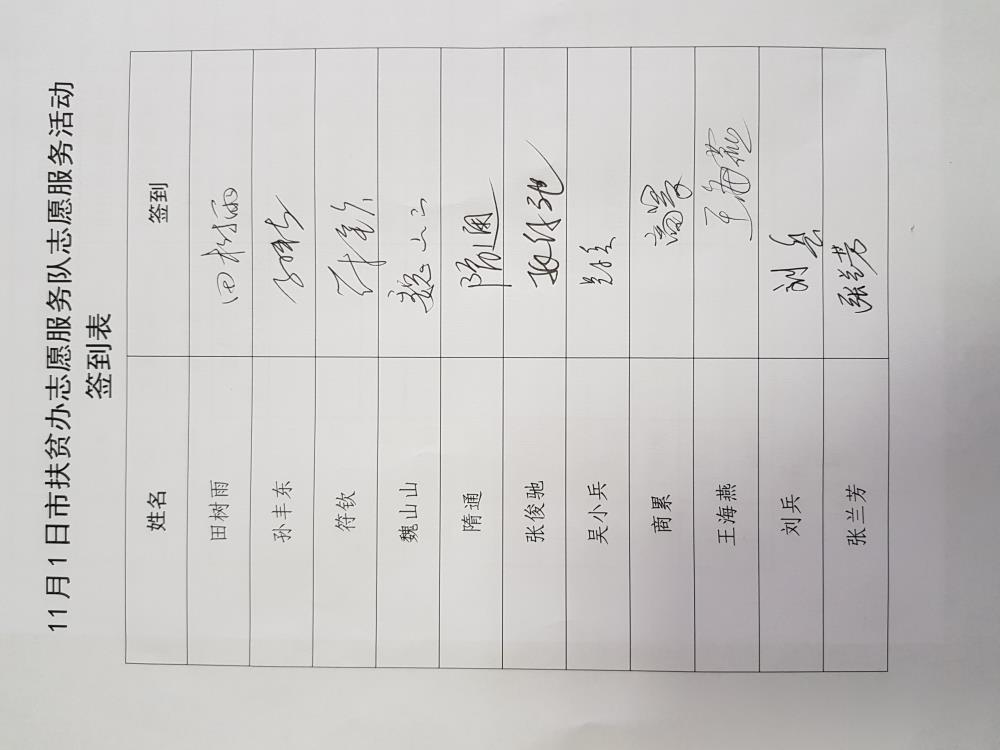 11月1日市扶贫办志愿服务队志愿服务活动
签到表
姓名 签到
田树雨 田树雨
孙丰东
符钦 符钦
魏山山 魏山山
隋通 隋通
张俊驰 张俊驰
吴小兵
商累 商累
王海燕 王海燕
刘兵 刘兵
张兰芳 张兰芳